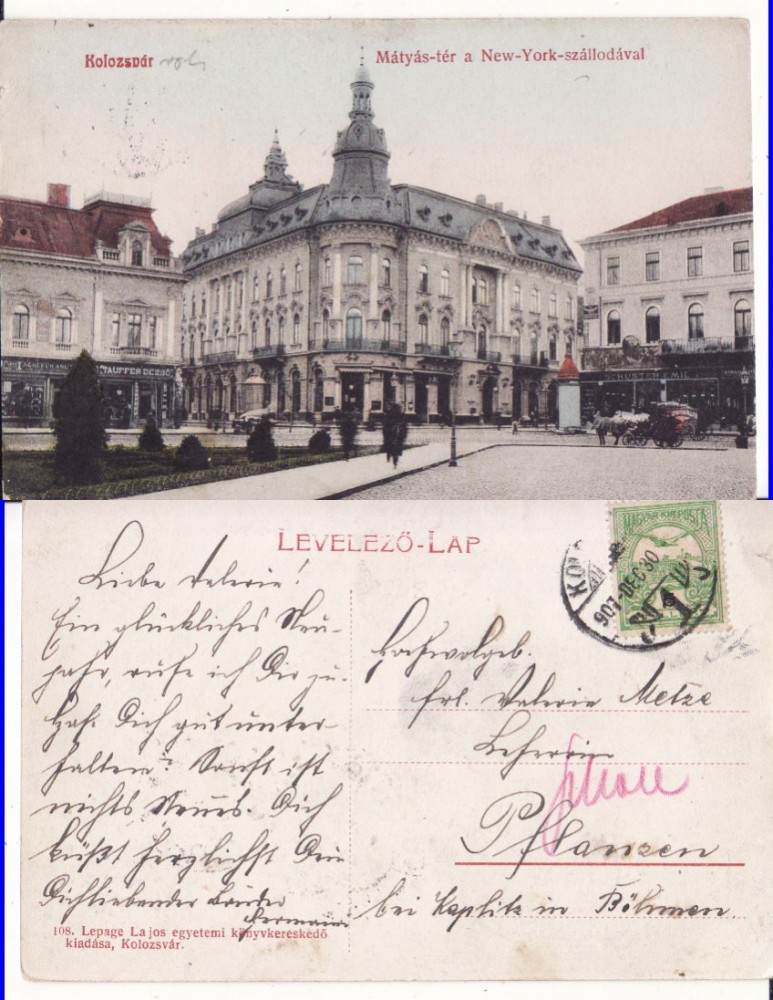 Kolozsvár
Mátyás-tér a New-York-szállodával
STAUFFER DEZSŐ
SCHUSTER EMIL
LEVELEZŐ-LAP
MAGYAR KIR. POSTA
907 DEC 30
Liebe Valerie!
Ein glückliches Neu-
jahr, rufe ich Dir zu.
Hast Dich gut unter-
halten? Sonst ist
nichts Neues. Dich
küßt herzlichst Dein
Dichliebender Bruder
Hermann
Hochwolgeb.
Frl. Valerie Metze
Lehrerin
Pflanzen
bei Kaplitz in Böhmen.
108. Lepage Lajos egyetemi könyvkereskedő
kiadása, Kolozsvár.